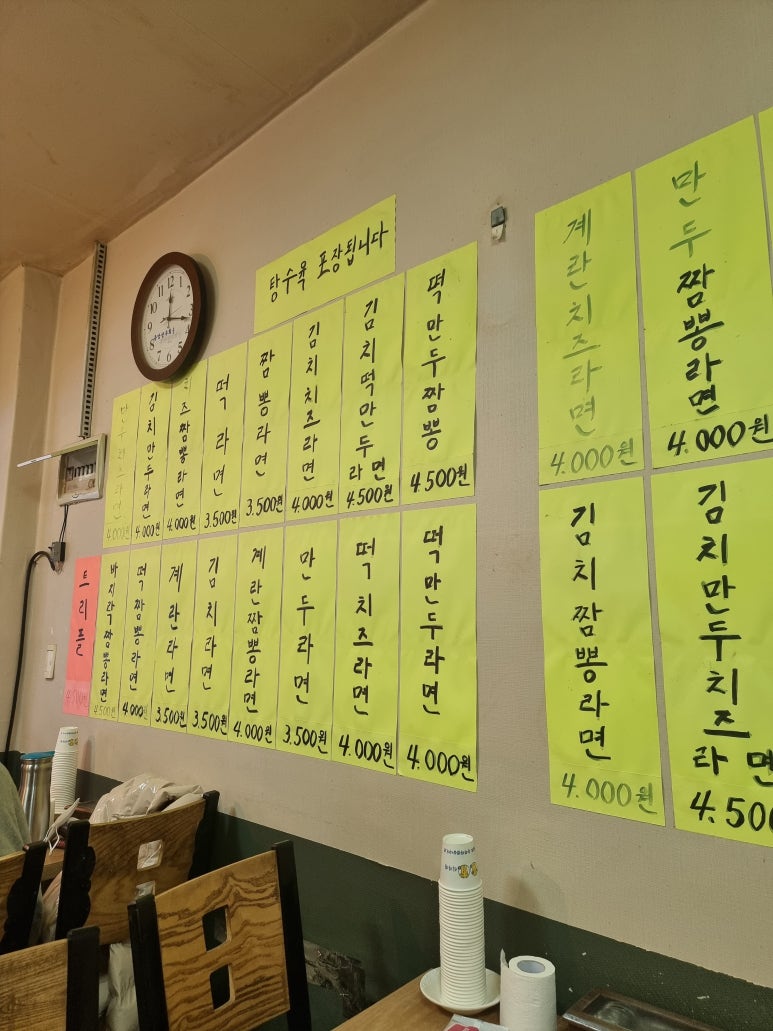 탕수육 포장됩니다
김치만두라면
4.000원
즈짬뽕라면
4.000원
떡라면
3.500원
짬뽕라면
3.500원
김치치즈라면
4.000원
김치떡만두라면
4.500원
떡만두짬뽕
4.500원
계란치즈라면
4.000원
만두짬뽕라면
4.000원
트리플
4.500원
바지락짬뽕라면
4.500원
떡짬뽕라면
4.000원
계란라면
3.500원
김치라면
3.500원
계란짬뽕라면
4.000원
만두라면
3.500원
떡치즈라면
4.000원
떡만두라면
4.000원
김치짬뽕라면
4.000원
김치만두치즈라면
4.500